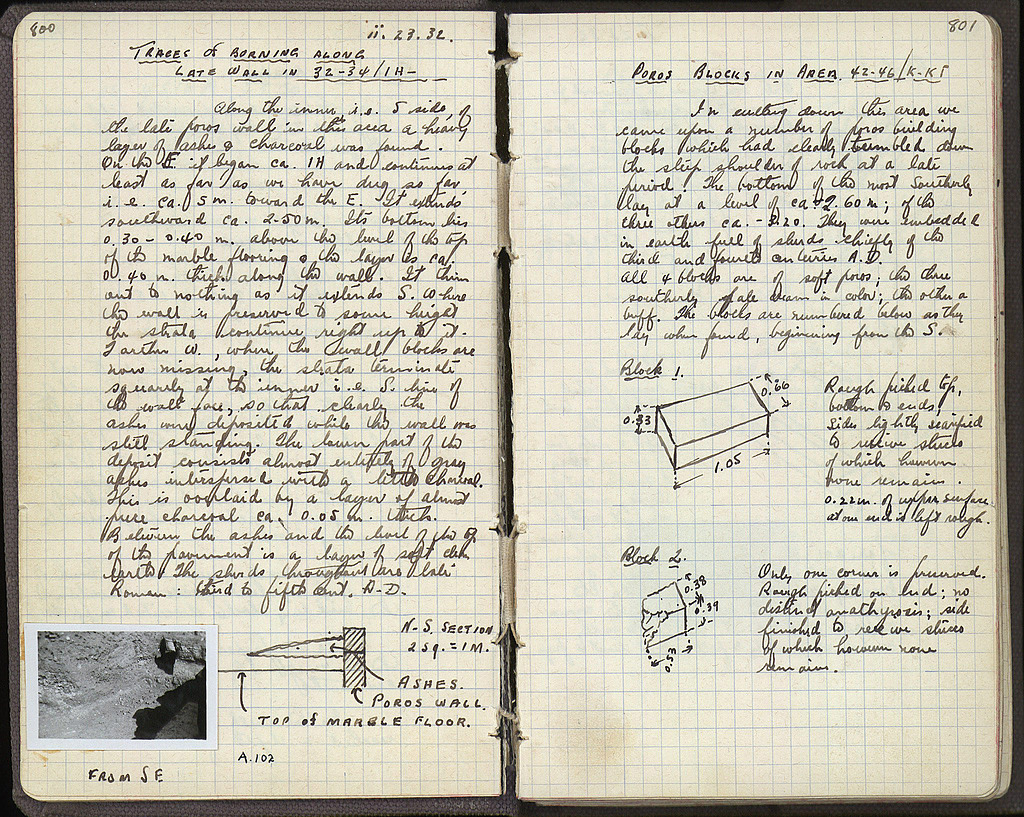 800
ii. 23. 32.
TRACES of BURNING ALONG
LATE WALL IN 32-34/IH-
Along the inner, i.e. S side, of
the late poros wall in this area a heavy
layer of ashes & charcoal was found.
On the E it began ca. IH and continues at
least as far as we have dug so far,
i.e. ca. 5 m. toward the E. It extends
southward ca. 2.50 m. Its bottom lies
0.30 - 0.40 m. above the level of the top
of the marble flooring & the layer is ca.
0.40 m. thick along the wall. It thins
out to nothing as it extends S. Where
the wall is preserved to some height
the strata continue right up to it.
Farther W., where the wall blocks are
now missing, the strata terminate
squarely at the inner i.e. S. line of
the wall face, so that clearly the
ashes were deposited while the wall was
still standing. The lower part of the
deposit consists almost entirely of gray
ashes interspersed with a little charcoal.
This is overlaid by a layer of almost
pure charcoal ca. 0.05 m. thick.
Between the ashes and the level of the top
of the pavement is a layer of soft
earth. The sherds throughout are late
Roman: third to fifth cent. A.D.
N-S. SECTION
2 SQ. = 1 M.
ASHES.
POROS WALL.
TOP of MARBLE FLOOR.
A.102
FROM SE
801
POROS BLOCKS IN AREA 42-46/K-KΓ
In cutting down this area we
came upon a number of poros building
blocks which had clearly tumbled down
the steep shoulder of rock at a late
period. The bottom of the most Southerly
lay at a level of ca -2.60 m; of the
three others ca. -3.20. They were embedded
in earth full of sherds chiefly of the
third and fourth centuries A.D.
All 4 blocks are of soft poros; the three
southerly pale cream in color; the other a
buff. The blocks are numbered below as they
lay when found, beginning from the S.
Block 1.
0.66
0.33
1.05
Rough picked top,
bottom & ends;
Sides lightly scarified
to receive stucco
of which however
none remains.
0.22 m. of upper surface
at one end is left rough.
Block 2.
0.38
0.39
0.53
Only one corner is preserved.
Rough picked on end; no
distinct anathyrosis; side
finished to receive stucco
of which however none
remains.